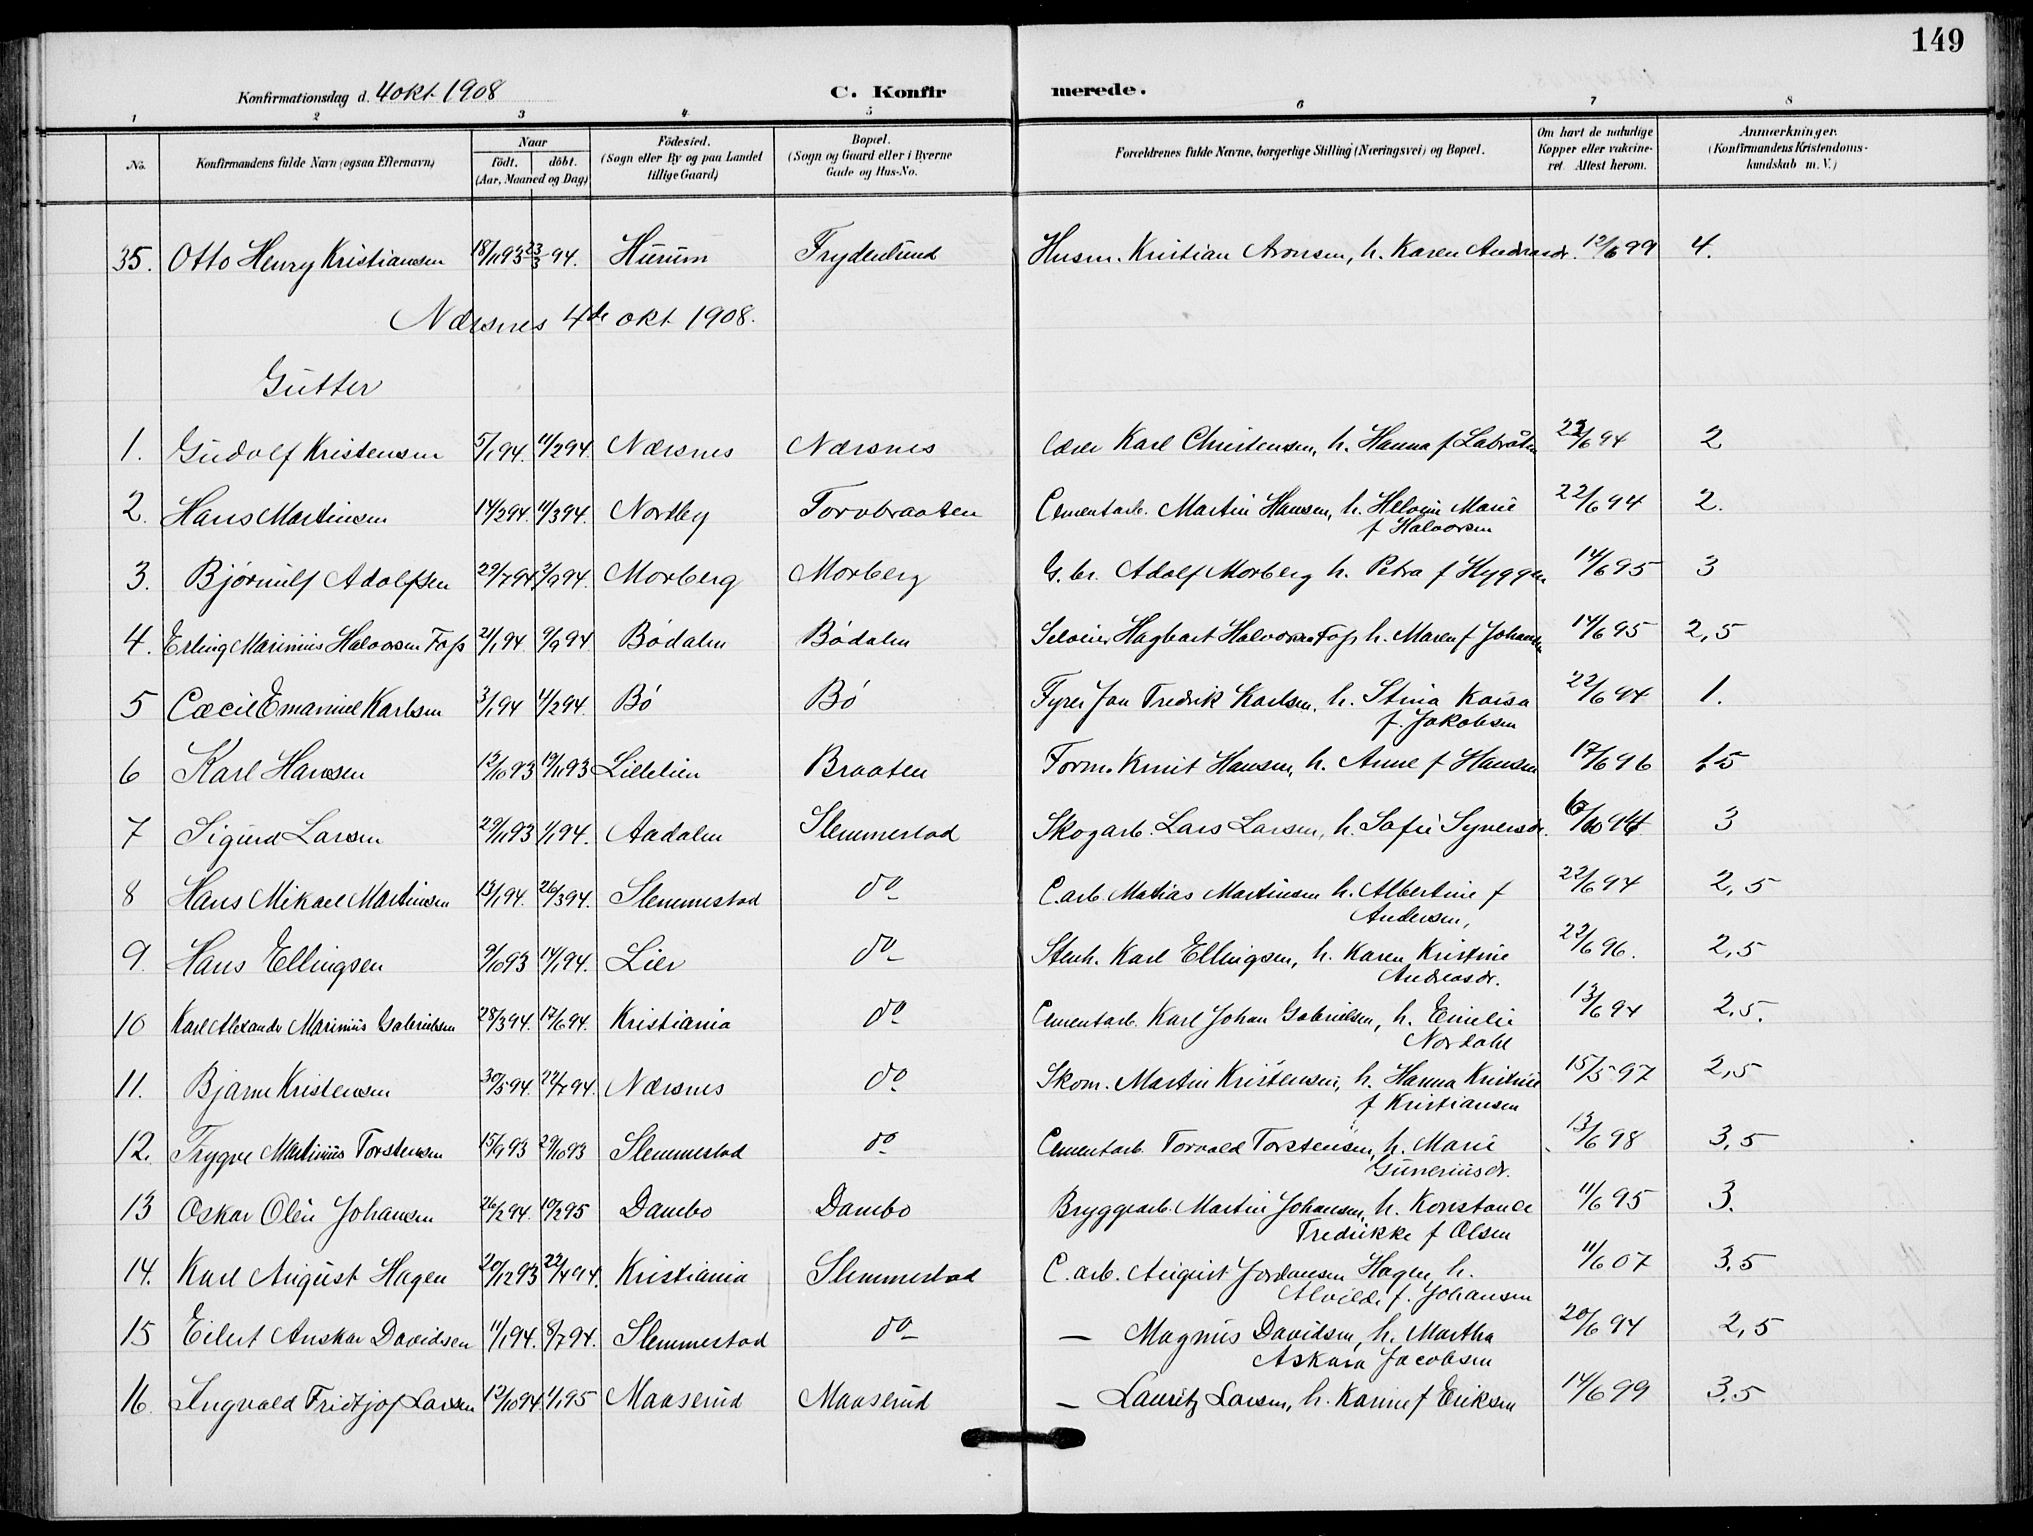 149
Konfirmationsdag d. 4 okt 1908 C. Konfir merede.
1 2 3 4 5 6 7 8
No. Konfirmandens fulde Navn (ogsaa Efternavn) Naar født. døbt. (Aar, Maaned og Dag) Födested. (Sogn eller By og paa Landet tillige Gaard) Bopæl. (Sogn og Gaard eller i Byerne Gade og Hus-No. Forældrenes fulde Navne, borgerlige Stilling (Næringsvei) og Bopæl. Om havt de naturlige Kopper eller vakcineret. Attest herom. Anmærkninger. (Konfirmandens Kristendomskundskab m. V.)
35. Otto Henry Kristiansen 18/11 93 23/3 94. Hurum Frydenlund Husm. Kristian Aronsen, h. Karen Andreasdr. 12/6 99 4.
Nærsnes 4de okt 1908.
Gutter
1. Gudolf Kristensen 5/1 94. 11/2 94. Nærsnes Nærsnes Karl Christensen, h. Hanna f Labråten 22/6 94 2
2. Hans Martinsen 14/2 94. 11/3 94. Nordby Torvbraaten Cementarb. Martin Hansen, h. Helvine Marie 22/6 94 2.
f Halvorsen
3. Bjørnulf Adolfsen 29/7 94 2/9 94. Morberg Morberg G.br. Adolf Morberg h. Petra f Hyggen 14/6 95 3
4. Erling Marinius Halvorsen Foss 21/1 94 9/9 94. Bødalen Bødalen Selveier Hagbart Halvorsen Foss h. Maren f Johansen 14/6 95 2,5
5 Cæcil Emanuel Karlsen 3/1 94 11/2 94. Bø Bø Fyrer Jan Fredrik Karlsen, h. Stina Kaisa 22/6 94 1.
f. Jakobsen
6 Karl Hansen 12/10 93 19/11 93 Lillelien Braaten Form. Knut Hansen, h. Anne f Hansen 17/6 96 1,5
7 Sigurd Larsen 29/11 93 1/1 94. Aadalen Slemmestad Skogarb. Lars Larsen, h. Sofie Syversdr. 6/10 94 3
8 Hans Mikael Martinsen 13/1 94. 26/3 94. Slemmestad do C.arb. Matias Martinsen h. Albertine f 22/6 94 2,5
Andersen,
9. Hans Ellingsen 9/10 93 14/1 94. Lier do Stenh. Karl Ellingsen, h. Karen Kristine 22/6 96. 2,5
Andreasdr.
10 Karl Alexander Marinius Gabrielsen 28/3 94. 17/6 94. Kristiania do Cementarb. Karl Johan Gabrielsen, h. Emelie 13/6 94 2,5.
Nordahl
11. Bjarne Kristensen 30/5 94. 22/7 94. Nærsnes do Skom. Martin Kristensen, h. Hanna Kristine 15/5 97 2,5
f Kristiansen
12. Trygve Martinius Torstensen 15/9 93 29/10 93 Slemmestad do Cementarb. Torvald Torstensen, h. Marie 13/6 98 3,5
Guneriusdr.
13 Oskar Olen Johansen 26/2 94. 10/2 95 Dambo Dambo Bryggearb. Martin Johansen, h. Konstance 11/6 95 3.
Fredrikke f Olsen
14. Karl August Hagen 20/12 93 22/4 94. Kristiania Slemmestad C. arb. August Jordansen Hagen, h. 11/6 07 3,5
Alvilde f. Johansen
15 Eilert Anskar Davidsen 11/1 94. 8/7 94. Slemmestad do — Magnus Davidsen, h. Martha 20/6 94 2,5
Askara Jacobsen
16. Ingvald Fridtjof Larsen 12/10 94. 1/1 95 Maaserud Maaserud — Lauritz Larsen, h. Karine f Eriksen 14/6 99 3,5